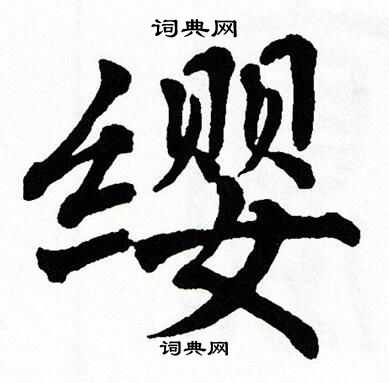 词典网
缨
词典网